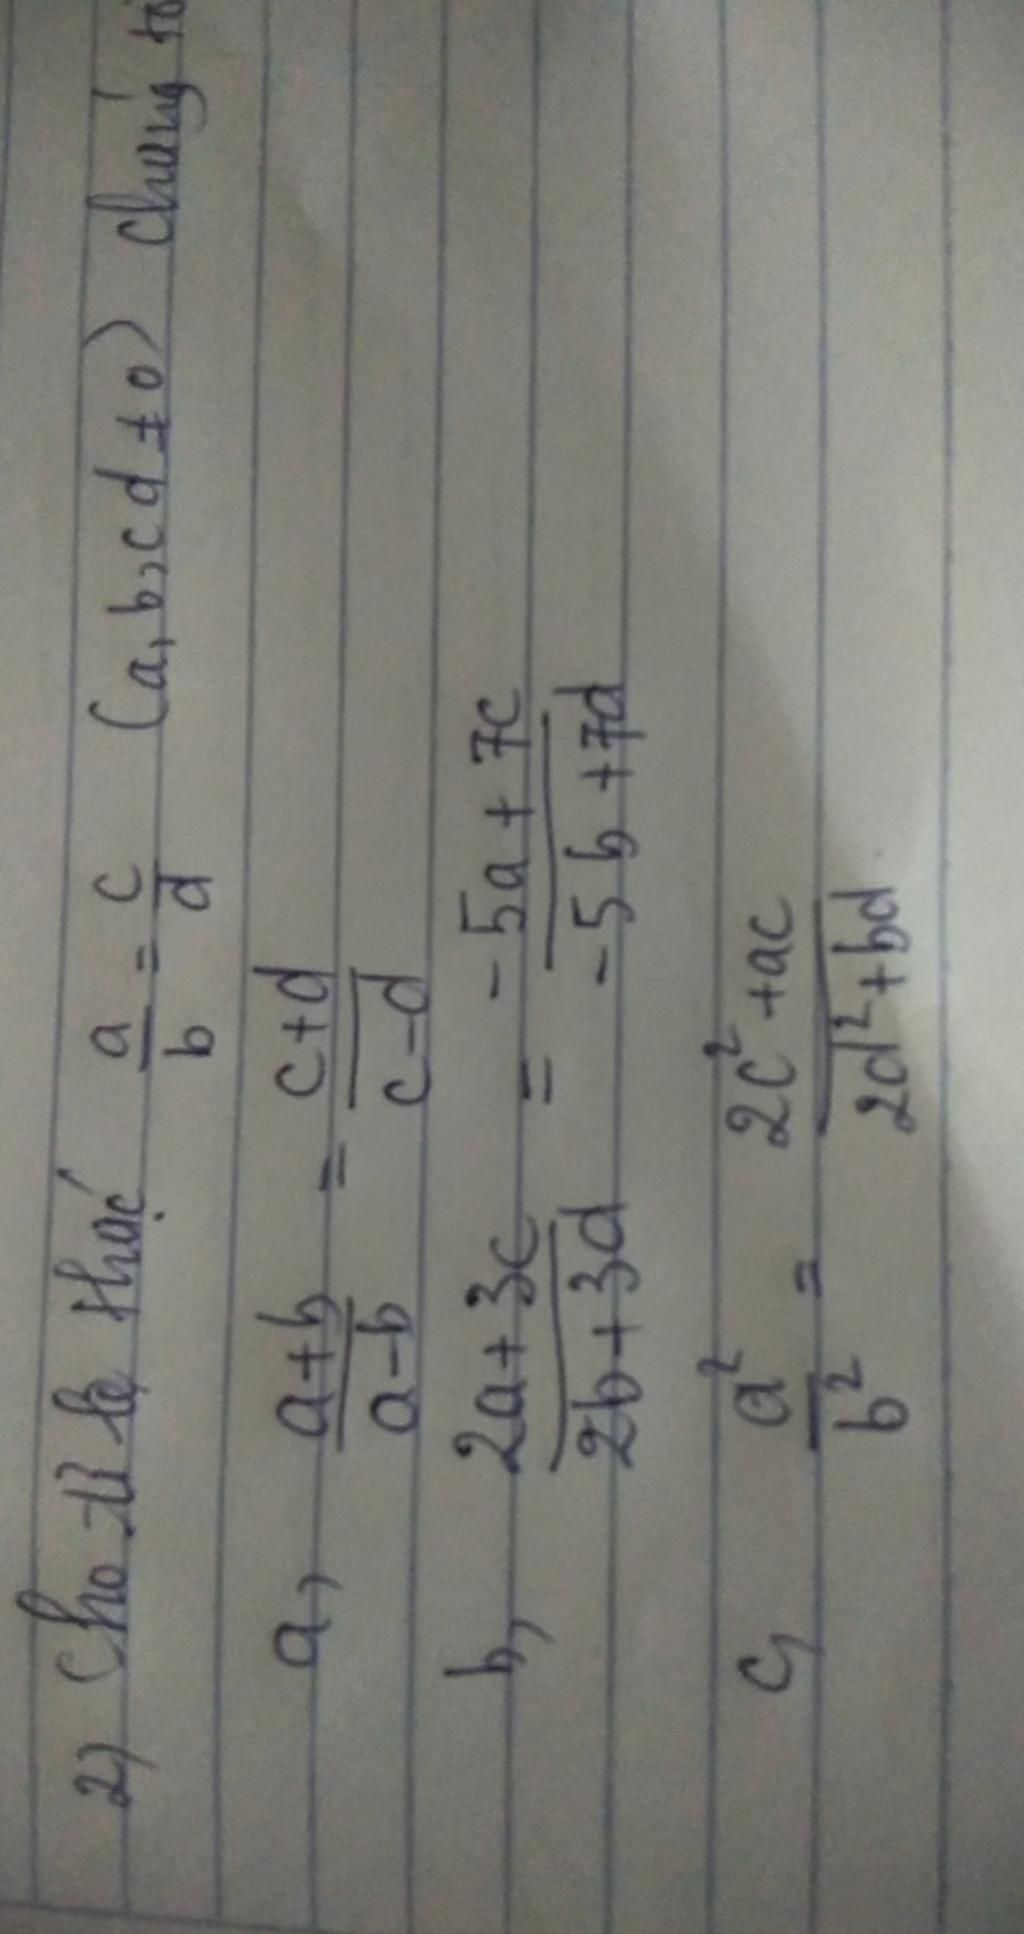 2) Cho tỉ lệ thức a/b = c/d (a, b, c d ≠ 0) chứng tỏ
a, a+b/a-b = c+d/c-d
b, 2a+3c/2b+3d = -5a+7c/-5b+7d
c, a²/b² = 2c²+ac/2d²+bd